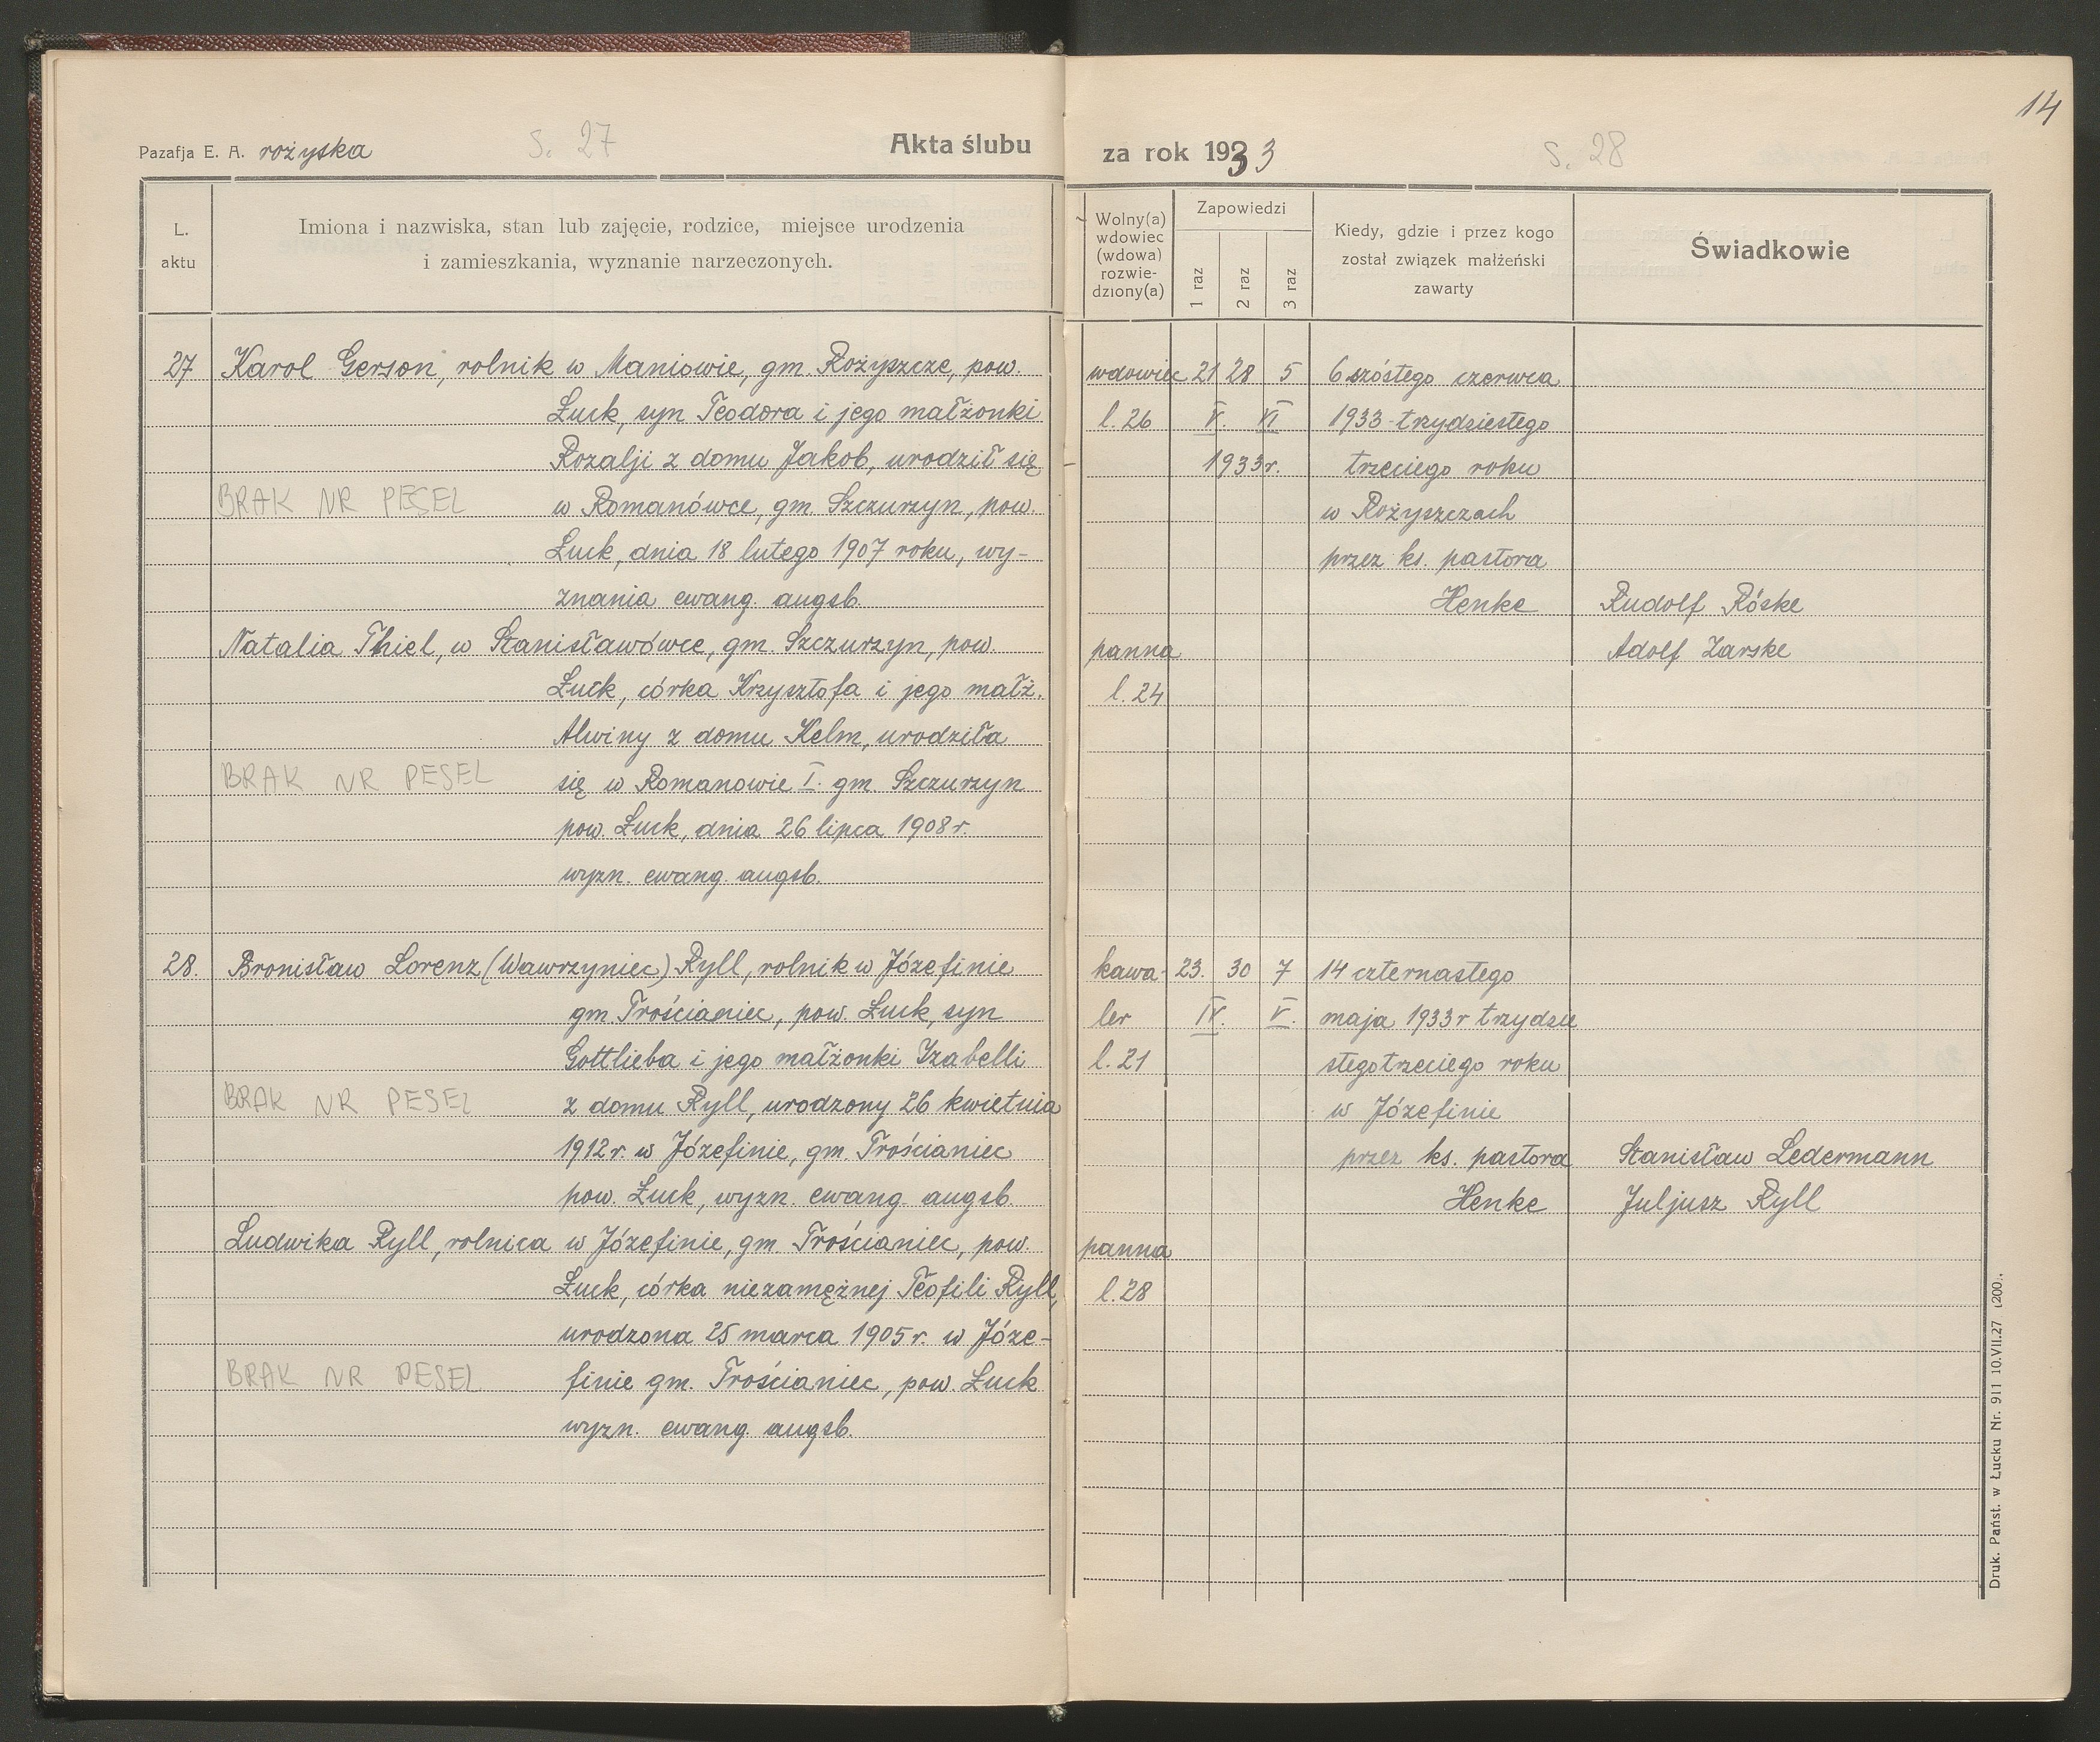 14
Pazafja E. A. rożyska
S. 27
Akta ślubu
za rok 1933
S. 28
L. aktu
Imiona i nazwiska, stan lub zajęcie, rodzice, miejsce urodzenia
i zamieszkania, wyznanie narzeczonych.
Wolny(a)
wdowiec
(wdowa)
rozwie-
dziony(a)
Zapowiedzi
1 raz
2 raz
3 raz
Kiedy, gdzie i przez kogo
został związek małżeński
zawarty
Świadkowie
27 Karol Gerson, rolnik w Maniowie, gm. Rożyszcze, pow.
Łuck, syn Teodora i jego małżonki
Rozalji z domu Jakob, urodził się
BRAK NR PESEL
w Romanówce, gm. Szczurzyn, pow.
Łuck, dnia 18 lutego 1907 roku, wy-
znania ewang. augsb.
Natalia Thiel, w Stanisławówce, gm. Szczurzyn, pow.
Łuck, córka Krzysztofa i jego małż.
Alwiny z domu Kelm, urodziła
BRAK NR PESEL
się w Romanowie I. gm. Szczurzyn
pow. Łuck, dnia 26 lipca 1908 r.
wyzn. ewang. augsb.
28. Bronisław Lorenz (Wawrzyniec) Ryll, rolnik w Józefinie
gm. Trościaniec, pow. Łuck, syn
Gottlieba i jego małżonki Izabelli
BRAK NR PESEL
z domu Ryll, urodzony 26 kwietnia
1912 r. w Józefinie, gm. Trościaniec
pow. Łuck, wyzn. ewang. augsb.
Ludwika Ryll, rolnica w Józefinie, gm. Trościaniec, pow.
Łuck, córka niezamężnej Teofili Ryll,
urodzona 25 marca 1905 r. w Józe-
BRAK NR PESEL
finie gm. Trościaniec, pow. Łuck
wyzn. ewang. augsb.
wdowiec 21 28 5 6 szóstego czerwca
l. 26 V. VI 1933 trzydziestego
1933 r. trzeciego roku
w Rożyszczach
przez ks. pastora
Henke Rudolf Röske
panna Adolf Zarske
l. 24
kawa- 23. 30 7 14 czternastego
ler IV. V. maja 1933 r trzydzie
l. 21 stego trzeciego roku
w Józefinie
przez ks. pastora Stanisław Ledermann
Henke Juljusz Ryll
panna
l. 28
Druk. Państ. w Łucku Nr. 911 10.VII.27 1200.